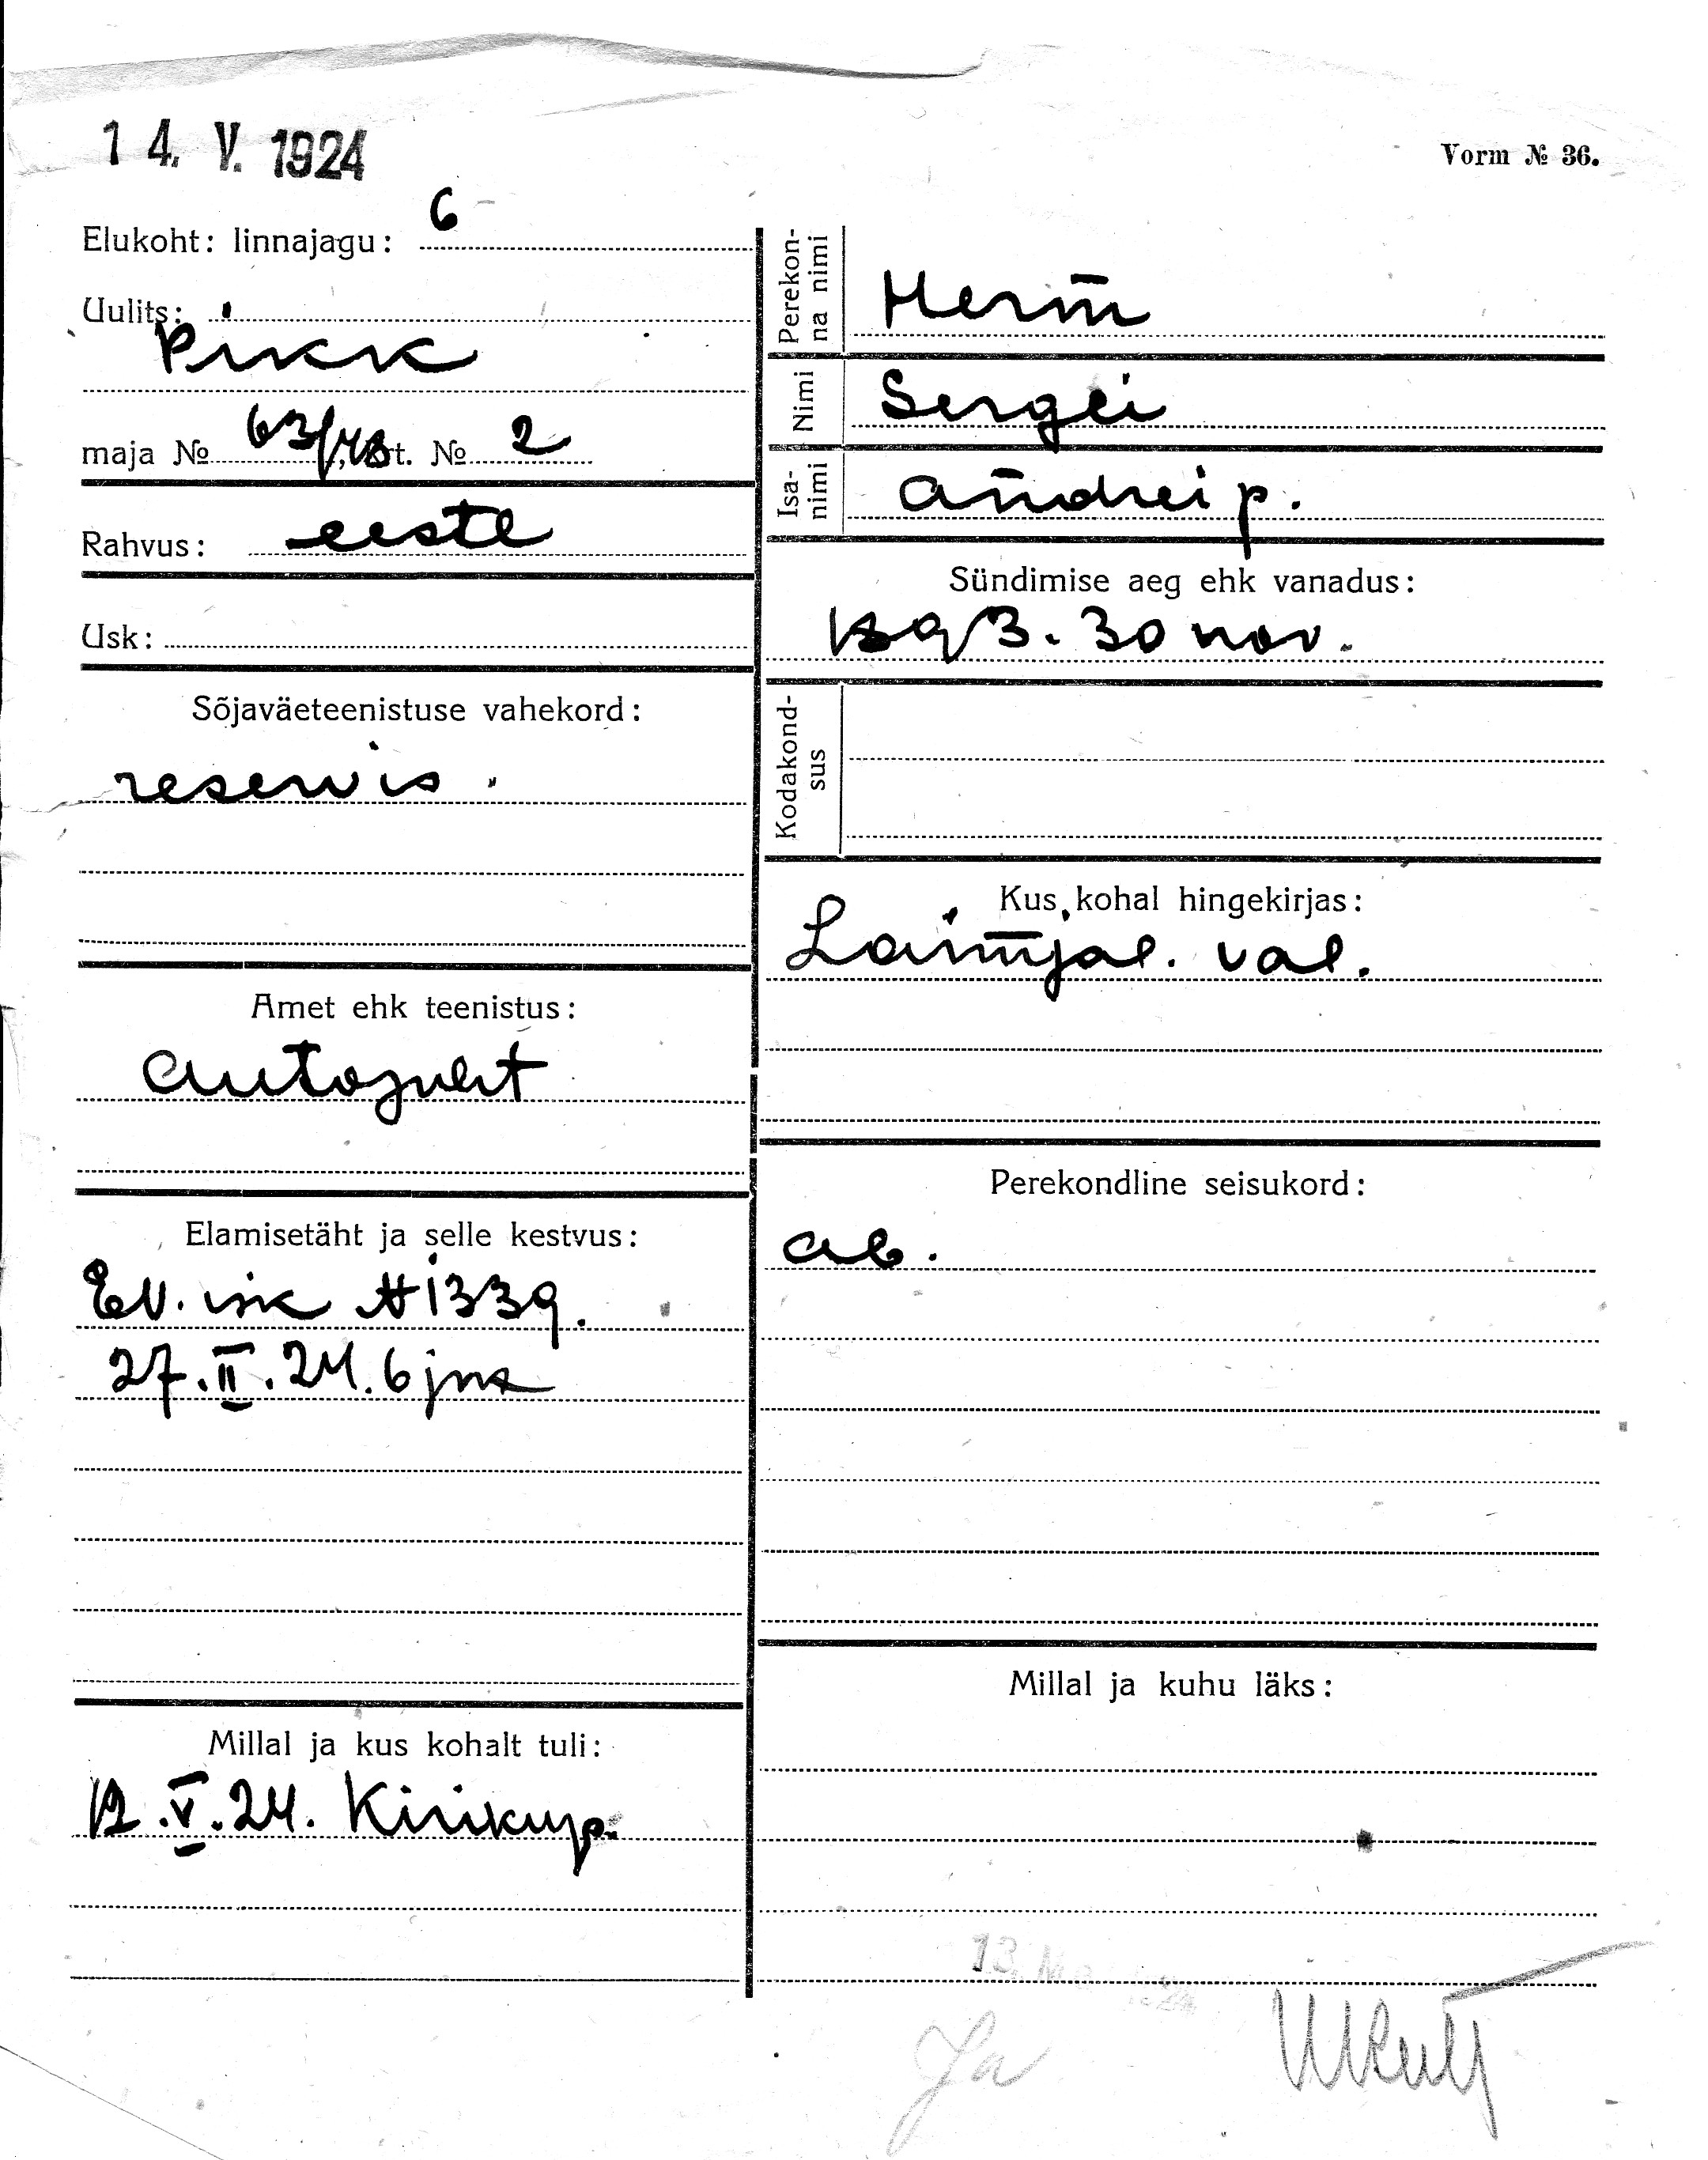 14. V. 1924
Vorm № 36.
Elukoht: linnajagu: 6
Uulits:
Pikk
maja № 63/ krt. № 2
Rahvus: eestl
Usk:
Sõjaväeteenistuse vahekord:
reservis.
Amet ehk teenistus:
autojuht
Elamisetäht ja selle kestvus:
EV. isik № 1339.
27.II.24.
Millal ja kus kohalt tuli:
12.V.24. Kirikup.
Perekonna nimi
Herm̄
Nimi
Sergei
Isanimi
Andrei p.
Sündimise aeg ehk vanadus:
1893. 30 nov.
Kodakondsus
Kus kohal hingekirjas:
Laim̄jal. val.
Perekondline seisukord:
ab.
Millal ja kuhu läks:
Ja